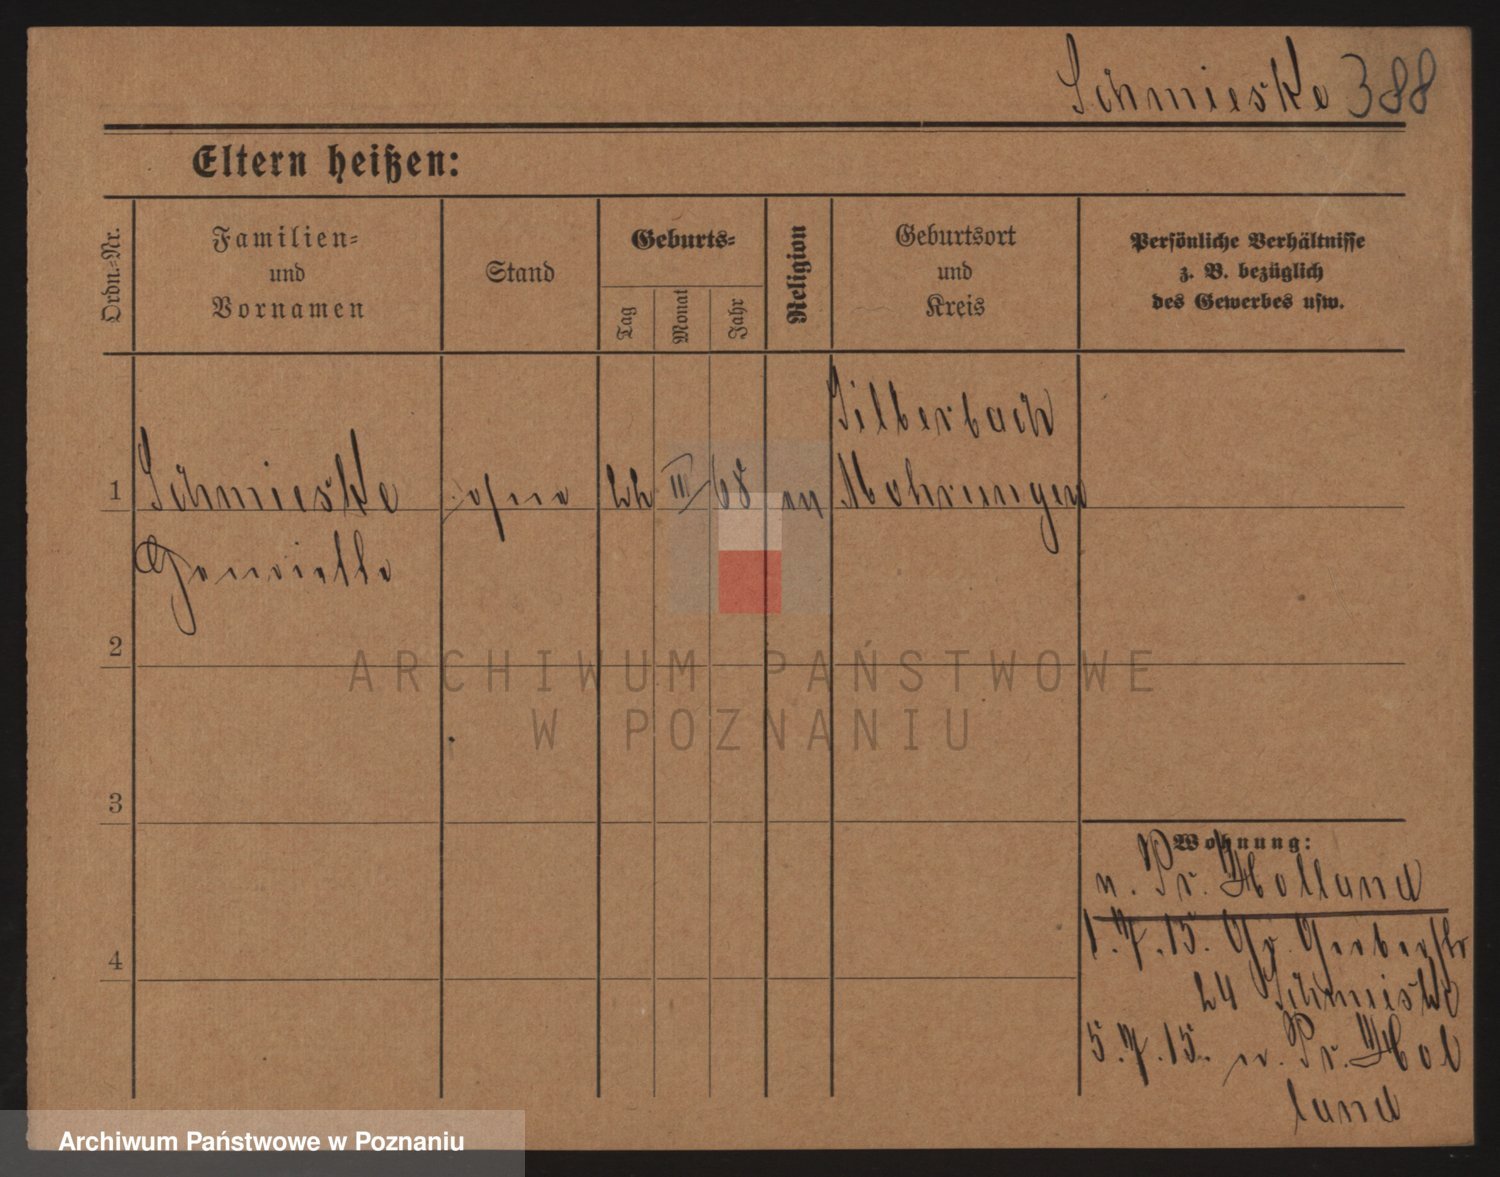 Schmieske 388
Eltern heißen:
Ordn.-Nr.
Familien-
und
Vornamen
Stand
Geburts-
Tag
Monat
Jahr
Religion
Geburtsort
und
Kreis
Persönliche Verhältnisse
z. B. bezüglich
des Gewerbes usw.
Silberbach
1 Schmieske ohne III 68 Mohrungen
2
3
4
Wohnung:
n. Pr. Holland
1.7.15. Gr. Gerberstr
24 Schmieske
5.7.15. n. Pr. Hol
land
ARCHIWUM PAŃSTWOWE
W POZNANIU
Archiwum Państwowe w Poznaniu